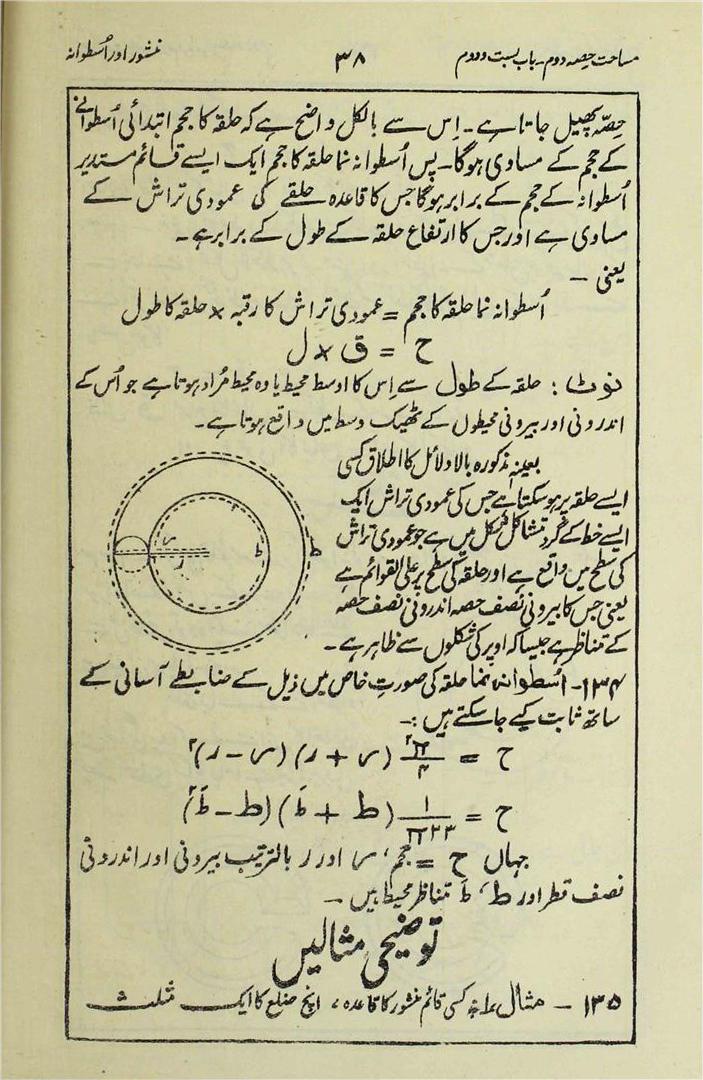 مساحت حصہ دوم ۔ باب بست و دوم ۳۸ منشور اور اُسطوانہ
حصّہ پھیل جاتا ہے۔ اِس سے بالکل واضح ہے کہ حلقہ کا حجم ابتدائی اُسطوانے
کے حجم کے مساوی ہوگا۔ پس اُسطوانہ نما حلقہ کا حجم ایک ایسے قائم مستدیر
اُسطوانہ کے حجم کے برابر ہوگا جس کا قاعدہ حلقے کی عمودی تراش کے
مساوی ہے اور جس کا ارتفاع حلقہ کے طول کے برابر ہے۔
یعنی ۔
اُسطوانہ نما حلقہ کا حجم = عمودی تراش کا رقبہ × حلقہ کا طول
ح = ق × ل
نوٹ : حلقہ کے طول سے اِس کا اوسط محیط یا وہ محیط مُراد ہوتا ہے جو اُس کے
اندرونی اور بیرونی محیطوں کے ٹھیک وسط میں واقع ہوتا ہے۔
بعینہٖ مذکورہ بالا دلائل کا اطلاق کسی
ایسے حلقہ پر ہو سکتا ہے جس کی عمودی تراش ایک
ایسے خط کے گرد متشاکل شکل میں ہے جو عمودی تراش
کی سطح میں واقع ہے اور حلقہ کی سطح پر علی القوائم ہے
یعنی جس کا بیرونی نصف حصہ اندرونی نصف حصہ
کے متناظر ہے جیسا کہ اوپر کی شکلوں سے ظاہر ہے۔
۱۳۴۔ اُسطوانہ نما حلقہ کی صورتِ خاص میں ذیل کے ضابطے آسانی کے
ساتھ ثابت کیے جا سکتے ہیں :۔
ح = π²/۴ (س + ر) (س − ر)²
ح = ۱/۳۲π (ط + طَ) (ط − طَ)²
جہاں ح = حجم، س اور ر بالترتیب بیرونی اور اندرونی
نصف قطر اور ط، طَ متناظر محیط ہیں ۔
توضیحی مثالیں
۱۳۵ ۔ مثال ۱۔ کسی قائم منشور کا قاعدہ، انچ ضلع کا ایک مثلث